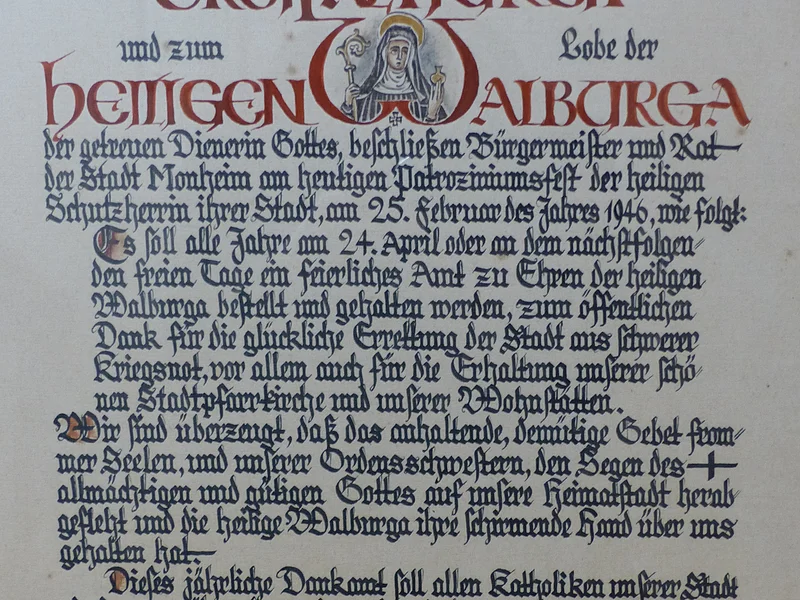 und zum Lobe der
heiligen Walburga
der getreuen Dienerin Gottes, beschließen Bürgermeister und Rat
der Stadt Monheim am heutigen Patroziniumsfest der heiligen
Schutzherrin ihrer Stadt, am 25. Februar des Jahres 1946, wie folgt:
Es soll alle Jahre am 24. April oder an dem nächstfolgen-
den freien Tage ein feierliches Amt zu Ehren der heiligen
Walburga bestellt und gehalten werden, zum öffentlichen
Dank für die glückliche Errettung der Stadt aus schwerer
Kriegsnot, vor allem auch für die Erhaltung unserer schö-
nen Stadtpfarrkirche und unserer Wohnstätten.
Wir sind überzeugt, daß das anhaltende, demütige Gebet from-
mer Seelen, und unserer Ordensschwestern, den Segen des
allmächtigen und gütigen Gottes auf unsere Heimatstadt herab-
gefleht und die heilige Walburga ihre schirmende Hand über uns
gehalten hat.
Dieses jährliche Dankamt soll allen Katholiken unserer Stadt